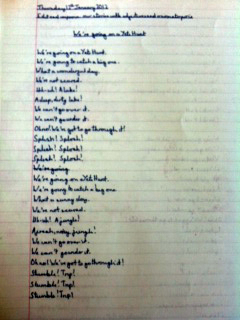 Thursday 12th January 2012
Edit and improve our stories with adjectives and onomatopoeia
We're going on a Yeti Hunt
We're going on a Yeti Hunt.
We're going to catch a big one.
What a wonderful day.
We're not scared.
Uh-uh! A lake!
A deep, dirty lake!
We can't go over it.
We can't go under it.
Oh no! We've got to go through it!
Splash! Splosh!
Splash! Splosh!
Splash! Splosh!
We're going
We're going on a Yeti Hunt.
We're going to catch a big one
What a sunny day.
We're not scared.
Uh-uh! A jungle!
A jungle!
We can't go over it.
We can't go under it.
Oh no! We've got to go through it!
Stumble! Trip!
Stumble! Trip!
Stumble! Trip!